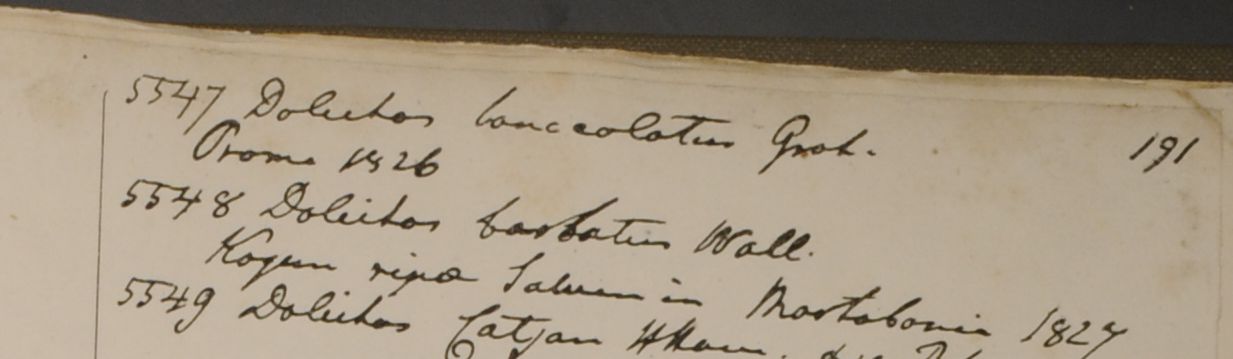 5547 Dolichos lanceolatus Grah. 191
Prome 1826
5548 Dolichos barbatus Wall.
Kogun ripa Saluen in Martabania 1827
5549 Dolichos Catjan HHam.